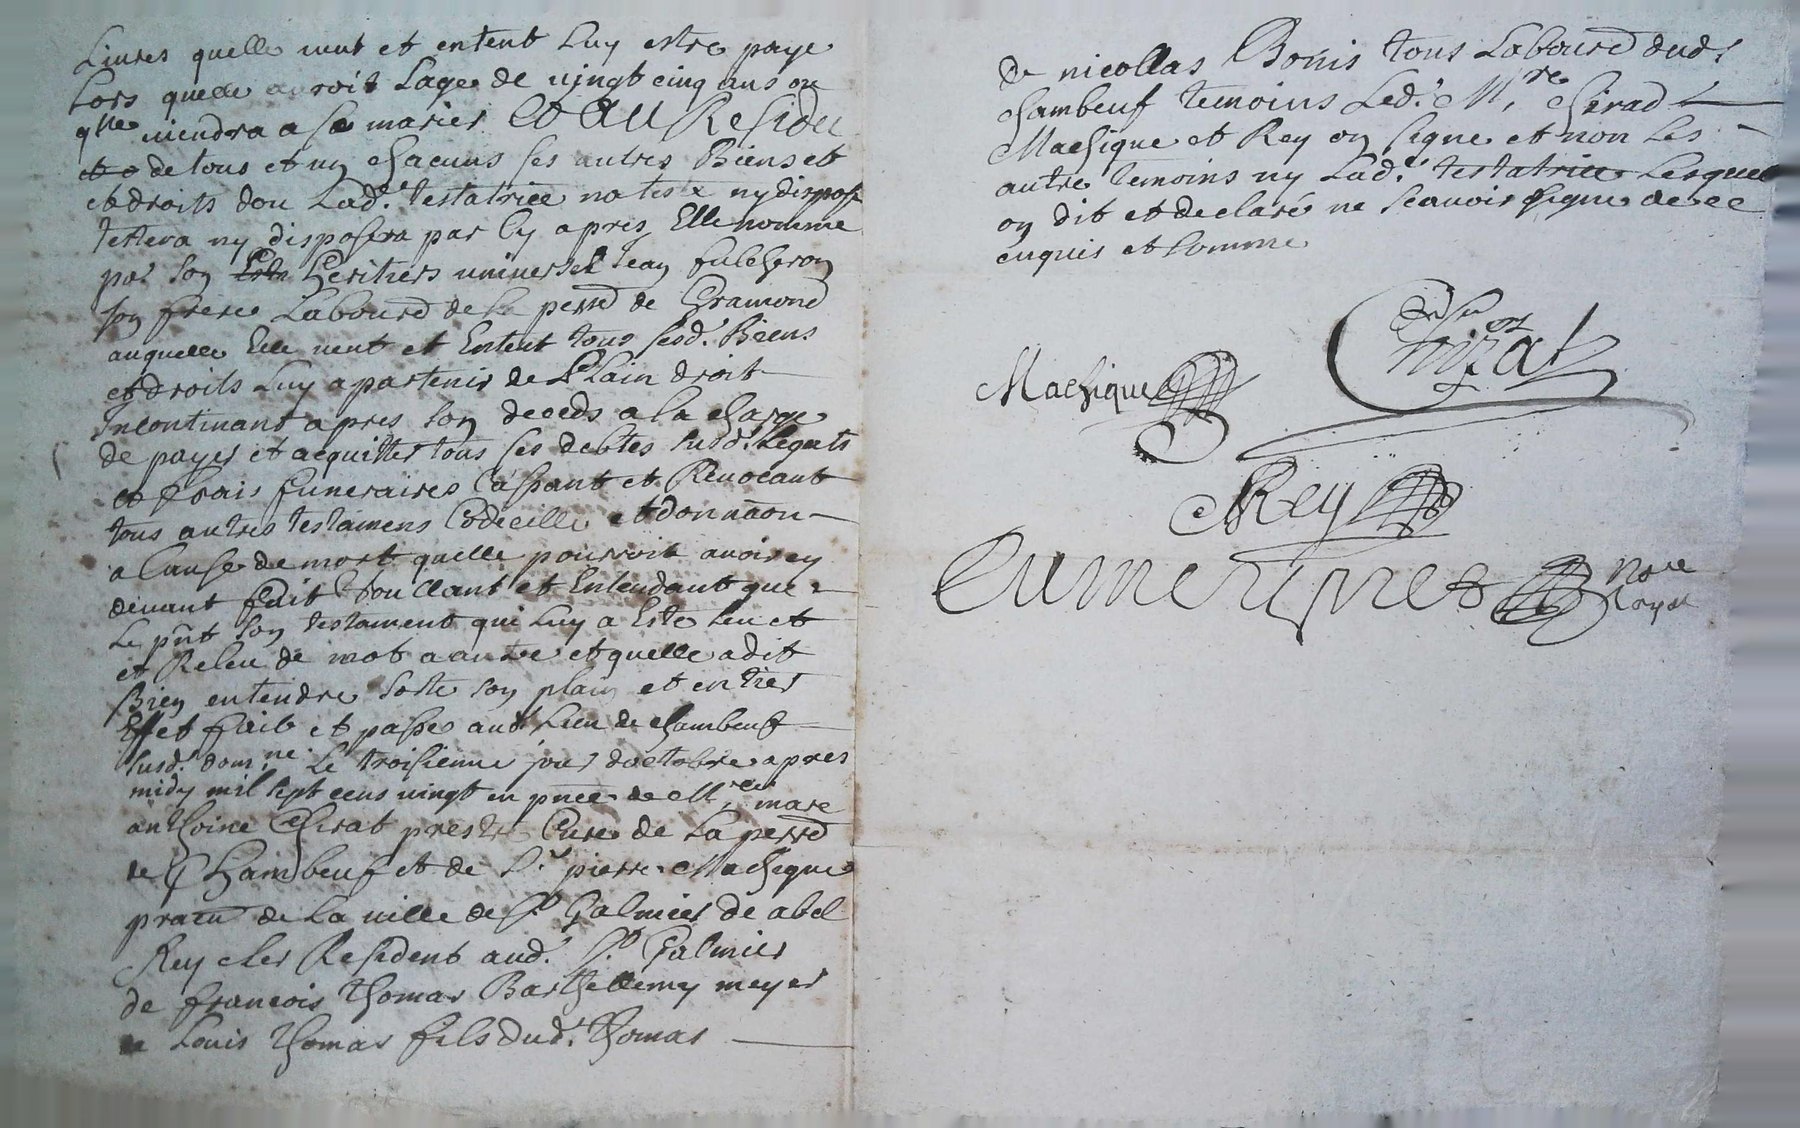 Livres quelle veut et entent luy estre paye
Lors quelle auroit Lage de vingt cinq ans ou
q'lle viendra a se marier Et Au Residu
et de tous et un chacuns ses autres Biens et
et droits dou Lad.e testatrice na teste ny dispose
testera ny disposera par Cy apres Elle nomme
par son Heritiers universel Jean fulcheron
son frere Labour.d de la perr.d de Gramond
auquelle Elle veut et Entent tous sesd.s Biens
et droits Luy apartenir de Plain droit
Incontinant apres son deceds a la charge
de payer et acquitter tous ses debtes susd.s Legats
et frais funeraires Cassant et Revocant
tous autres testamens Codecille et donnaon
a Cause de mort quelle pouvoit avoir cy
devant fait Voullant et Entendant que
Le pnt son testament qui Luy a Esté Leu et
et Releu de mot a autre et quelle a dit
Bien entendre sorte son plain et entier
Effet fait et passé aud. Lieu de chambeuf
susd. dom.ne Le troisieme jour doctobre apres
midy mil sept cens vingt en pnce de M.re marc
anthoine Chirat prestre Curé de La perr.d
de Chambeuf et de S.r pierre Machique
pratn de La ville de S.t Galmier de abel
Rey cler Resident aud. S.t Galmier
de francois thomas Barthellemy meyer
de Louis thomas fils dud. thomas
de nicollas Bonis tous Labour.d dud.
chambeuf temoins Led. M.re chirad
Machique et Rey on signe et non Les
autre temoins ny Lad.e testatrice Lesquel
on dit et declaré ne scavoir signe de ce
enquis et somme
Chirat
Machique
Rey
nore
Royal